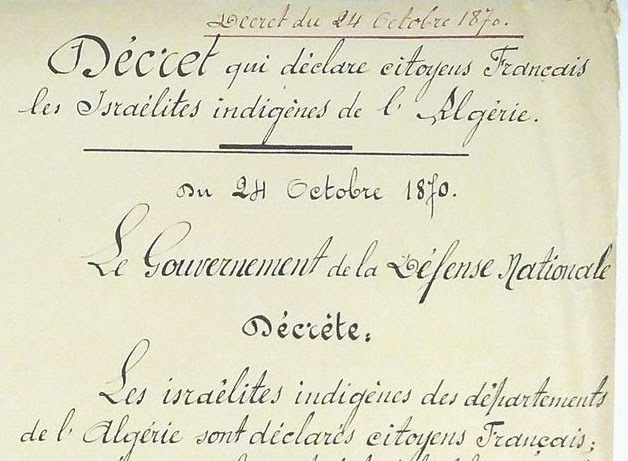 Decret du 24 Octobre 1870.
Décret qui déclare citoyens Français
les Israélites indigènes de l' Algérie.
Du 24 Octobre 1870.
Le Gouvernement de la Défense Nationale
Décrète:
Les israélites indigènes des départements
de l' Algérie sont déclarés citoyens Français;